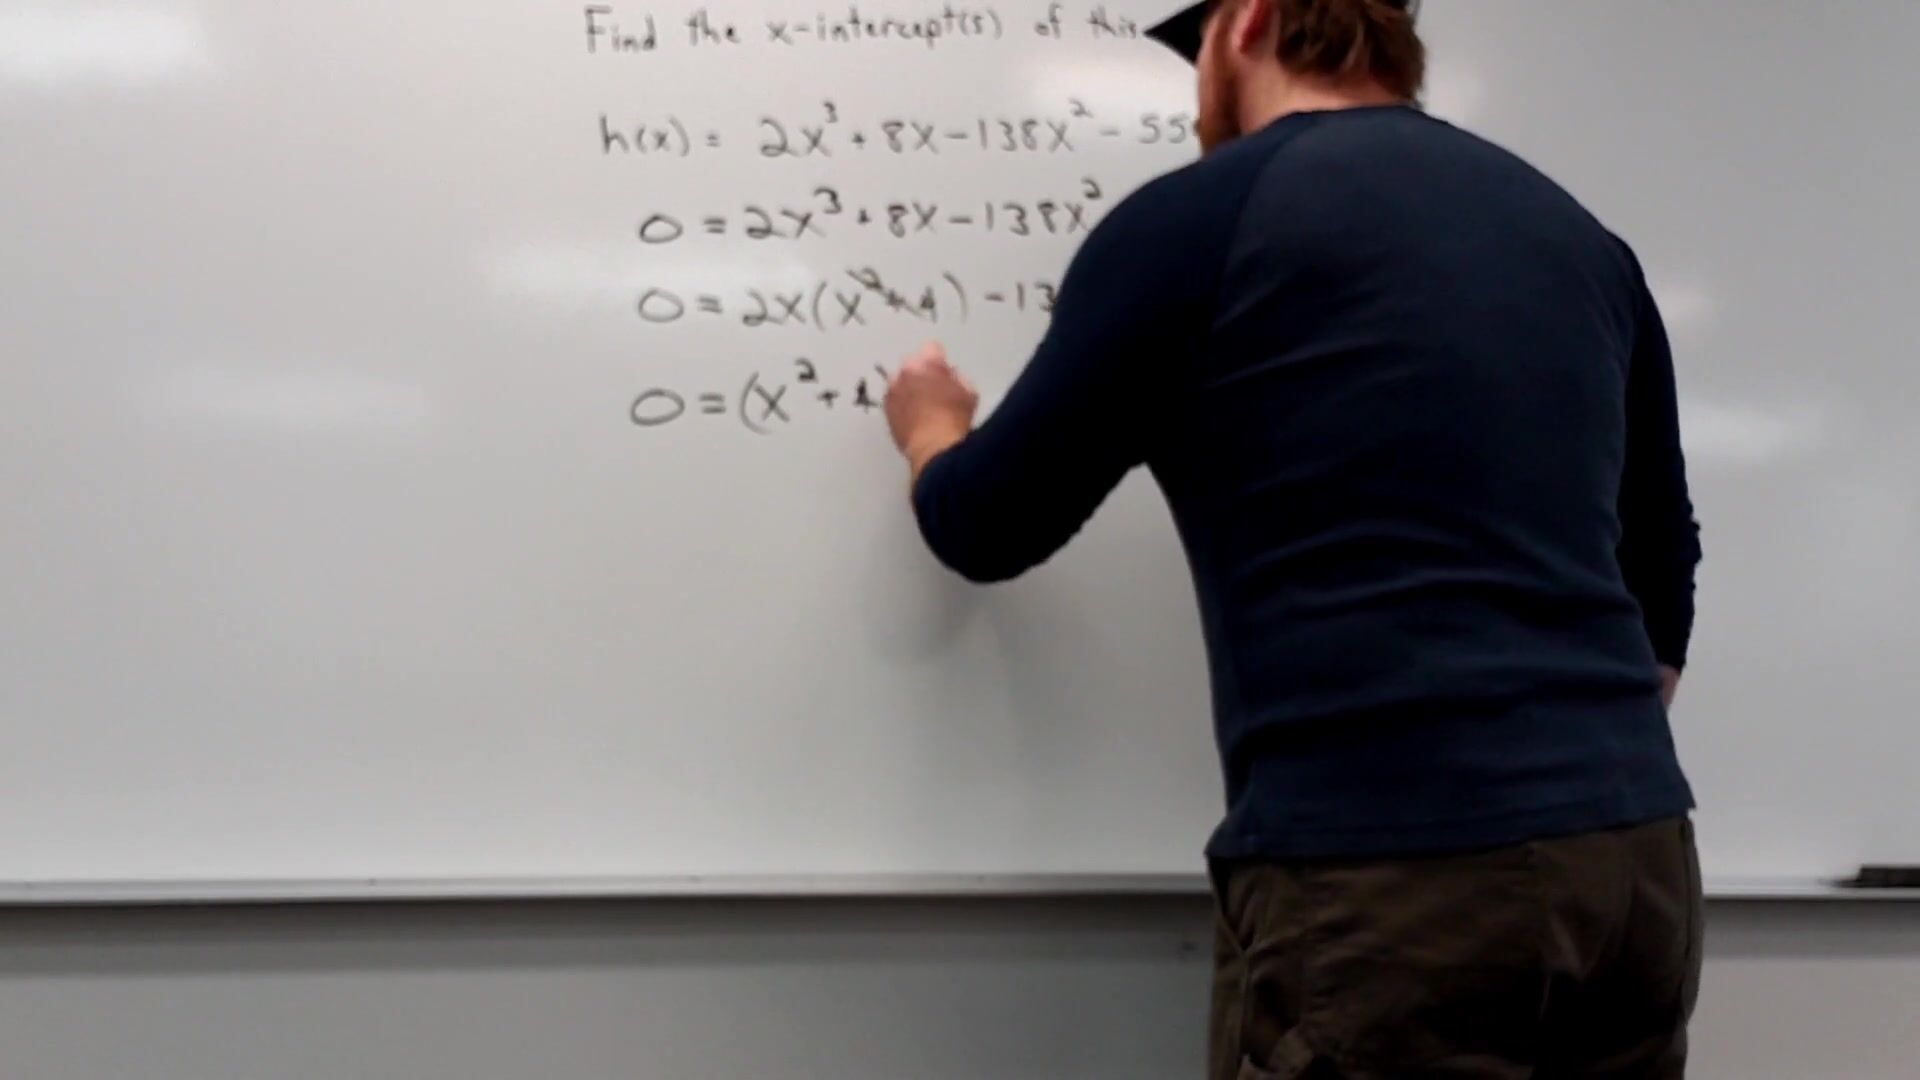 Find the x-intercept(s) of this
h(x) = 2x³ + 8x - 138x² - 55
0 = 2x³ + 8x - 138x²
0 = 2x(x² + 4) - 13
0 = (x² + 4)